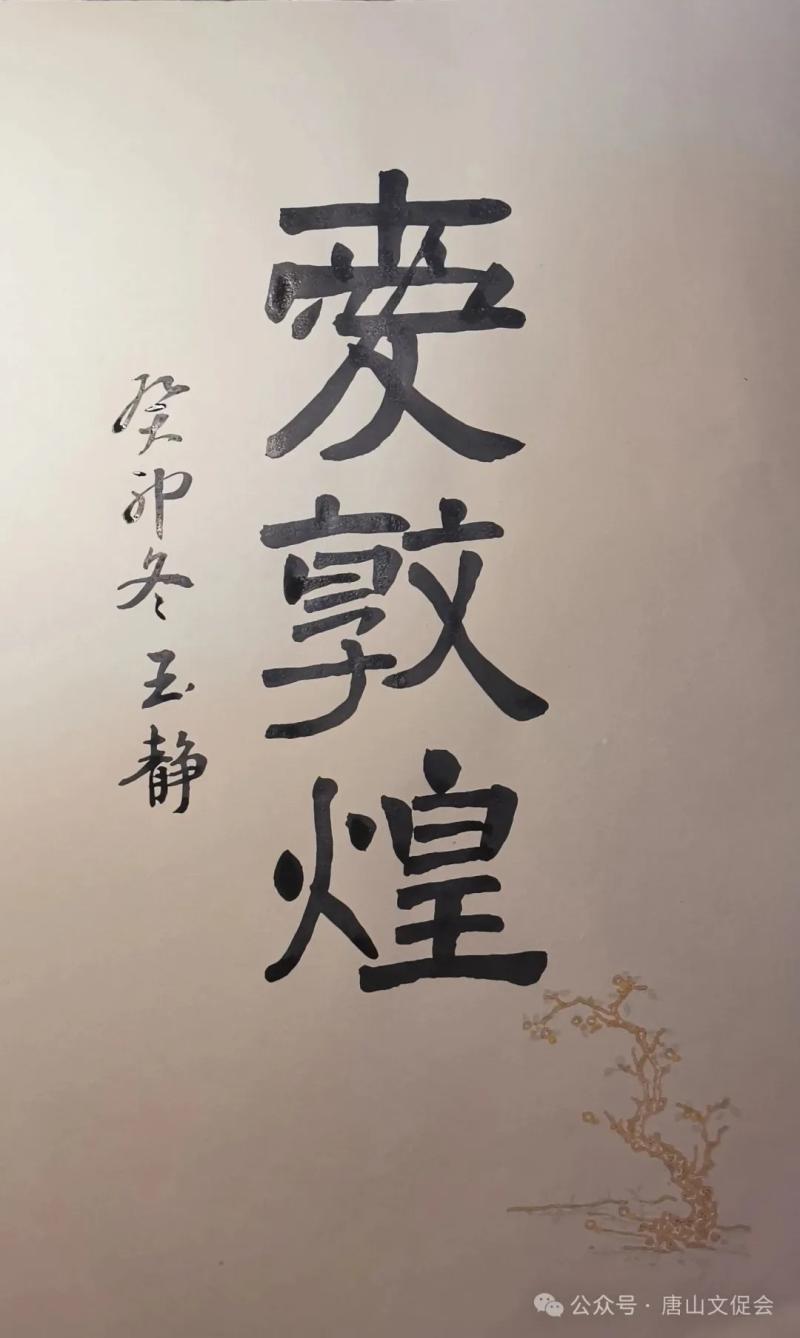 爱敦煌
癸卯冬玉静
公众号·唐山文促会